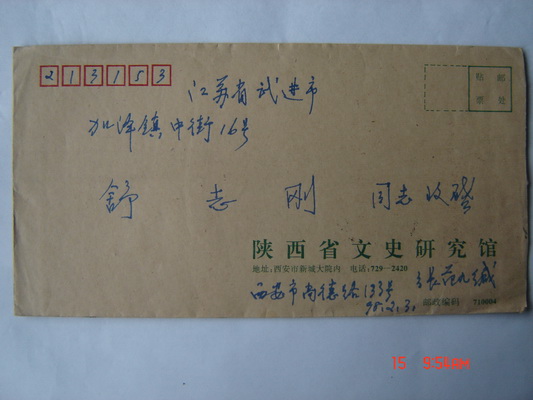 213153
江苏省武进市
邮 票
处 贴
北泽镇中街16号
舒志刚 同志收启
陕西省文史研究馆
地址:西安市新城大院内 电话:729-2420
西安市尚德路133号
98.2.3.
邮政编码 710004
15 9:51AM